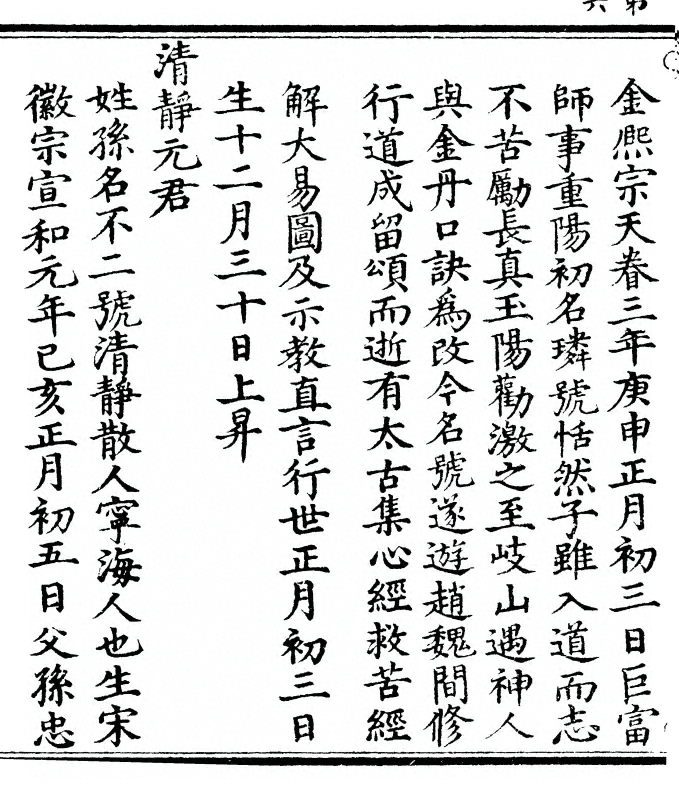 金熙宗天眷三年庚申正月初三日巨富
師事重陽初名璘號恬然子雖入道而志
不苦勵長真玉陽勸激之至岐山遇神人
與金丹口訣爲改今名號遂遊趙魏間修
行道成留頌而逝有太古集心經救苦經
解大易圖及示教直言行世正月初三日
生十二月三十日上昇
清靜元君
姓孫名不二號清靜散人寧海人也生宋
徽宗宣和元年己亥正月初五日父孫忠